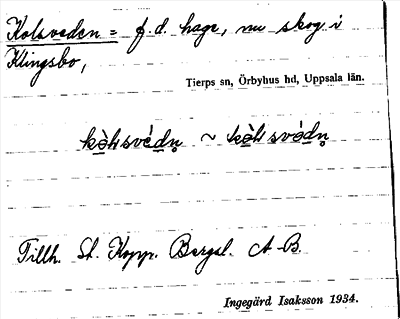 Kolsveden = f.d. hage, nu skog i
Klingsbo,
Tierps sn, Örbyhus hd, Uppsala län.
Tillh. St. Kopp. Bergsl. A-B.
Ingegärd Isaksson 1934.